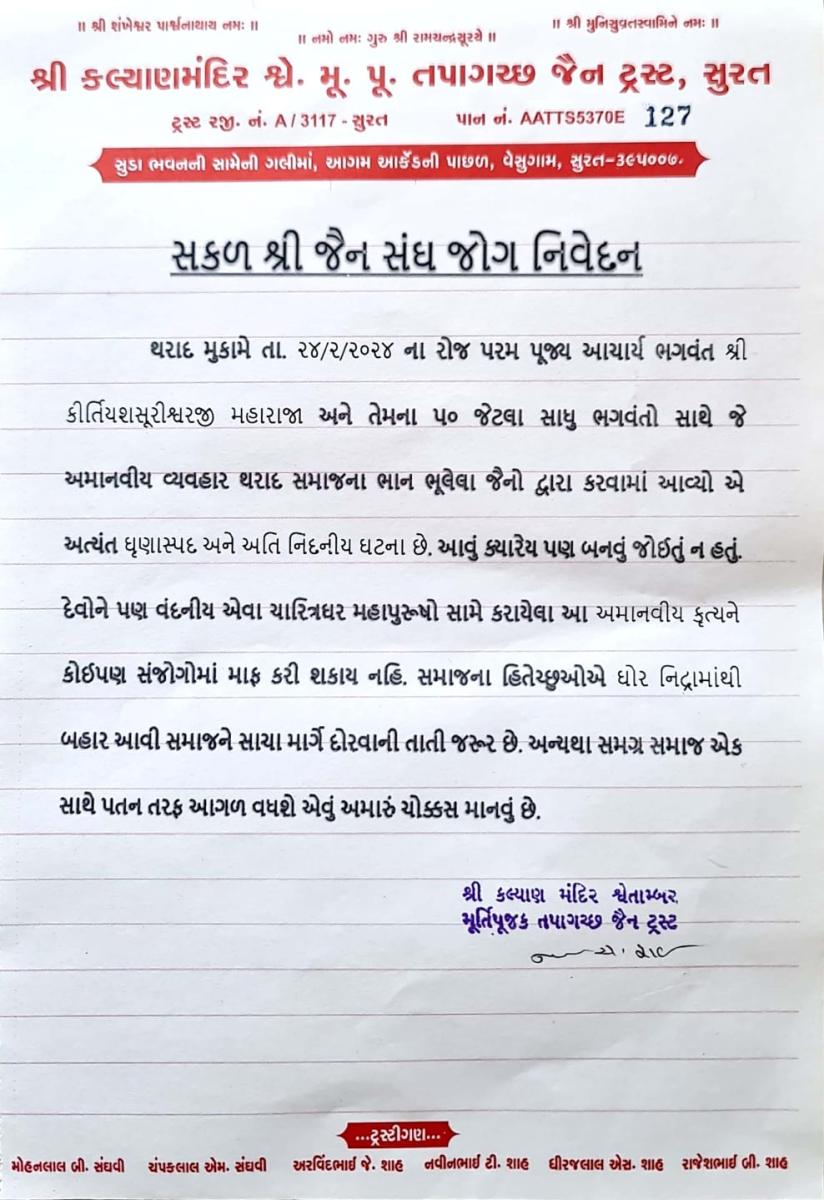 ॥ શ્રી શંખેશ્વર પાર્શ્વનાથાય નમઃ ॥
॥ નમો નમઃ ગુરુ શ્રી રામચન્દ્રસૂરયે ॥
॥ શ્રી મુનિસુવ્રતસ્વામિને નમઃ ॥
શ્રી કલ્યાણમંદિર શ્વે. મૂ. પૂ. તપાગચ્છ જૈન ટ્રસ્ટ, સુરત
ટ્રસ્ટ રજી. નં. A / 3117 - સુરત પાન નં. AATTS5370E 127
સુડા ભવનની સામેની ગલીમાં, આગમ આર્કેડની પાછળ, વેસુગામ, સુરત-૩૯૫૦૦૭.
સકળ શ્રી જૈન સંઘ જોગ નિવેદન
થરાદ મુકામે તા. ૨૪/૨/૨૦૨૪ ના રોજ પરમ પૂજ્ય આચાર્ય ભગવંત શ્રી
કીર્તિયશસૂરીશ્વરજી મહારાજા અને તેમના ૫૦ જેટલા સાધુ ભગવંતો સાથે જે
અમાનવીય વ્યવહાર થરાદ સમાજના ભાન ભૂલેલા જૈનો દ્વારા કરવામાં આવ્યો એ
અત્યંત ઘૃણાસ્પદ અને અતિ નિંદનીય ઘટના છે. આવું ક્યારેય પણ બનવું જોઈતું ન હતું.
દેવોને પણ વંદનીય એવા ચારિત્રધર મહાપુરૂષો સામે કરાયેલા આ અમાનવીય કૃત્યને
કોઈપણ સંજોગોમાં માફ કરી શકાય નહિ. સમાજના હિતેચ્છુઓએ ઘોર નિદ્રામાંથી
બહાર આવી સમાજને સાચા માર્ગે દોરવાની તાતી જરૂર છે. અન્યથા સમગ્ર સમાજ એક
સાથે પતન તરફ આગળ વધશે એવું અમારું ચોક્કસ માનવું છે.
શ્રી કલ્યાણ મંદિર શ્વેતામ્બર
મૂર્તિપૂજક તપાગચ્છ જૈન ટ્રસ્ટ
...ટ્રસ્ટીગણ...
મોહનલાલ બી. સંઘવી ચંપકલાલ એમ. સંઘવી અરવિંદભાઈ જે. શાહ નવીનભાઈ ટી. શાહ ધીરજલાલ એસ. શાહ રાજેશભાઈ બી. શાહ